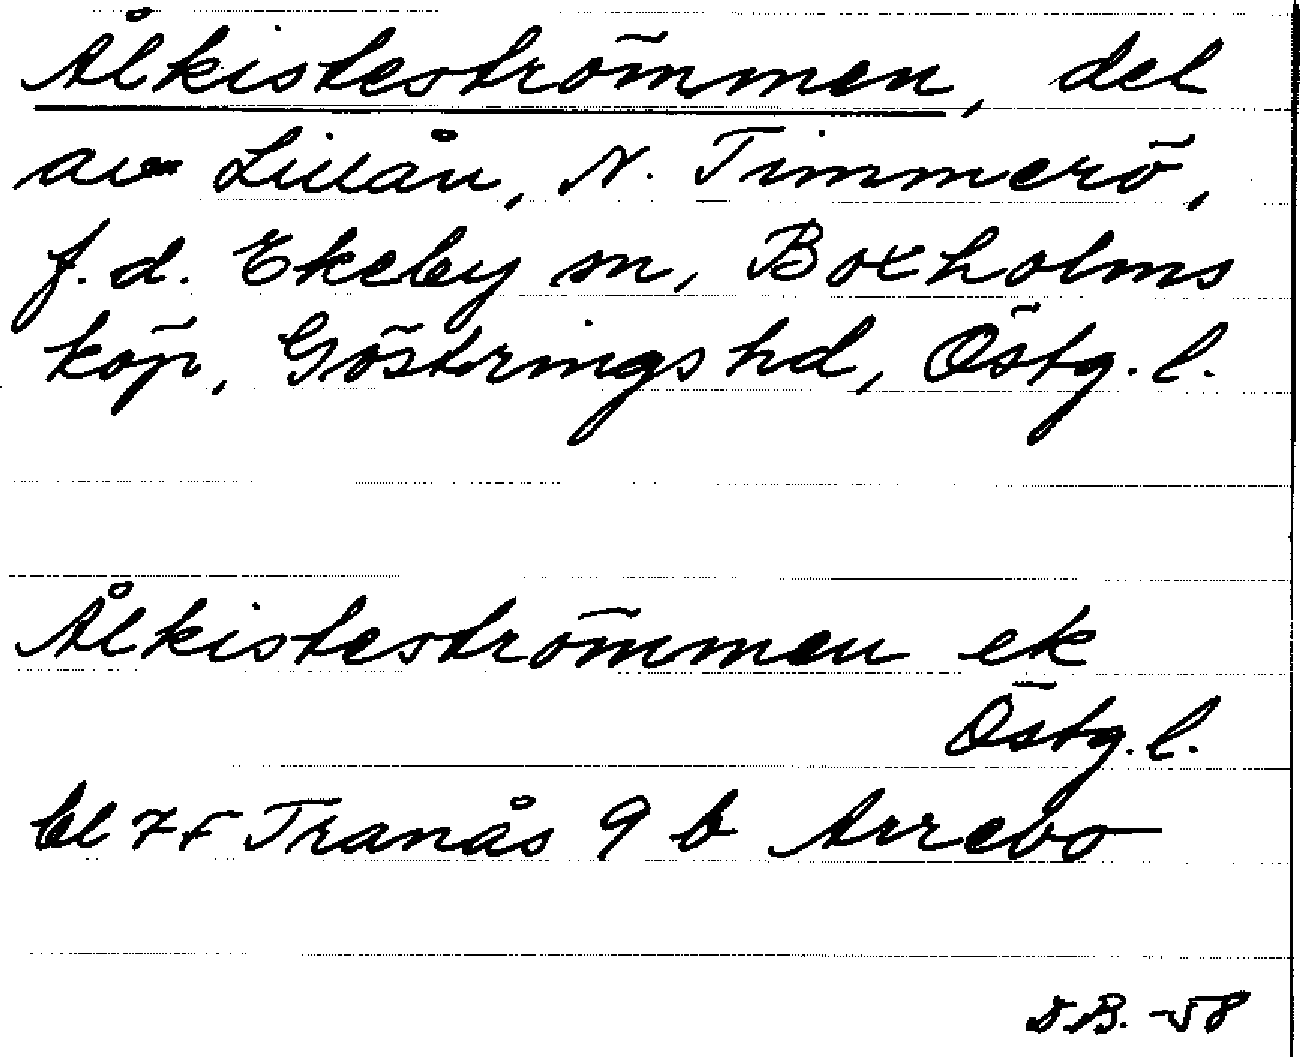 Ålkisteströmmen, del
av Lillån, N. Timmerö,
f.d. Ekeby sn, Boxholms
köp, Göstrings hd, Östg. l.
Ålkisteströmmen ek
Östg. l.
bl 7F Tranås 9 b Arrebo
D.B. -58